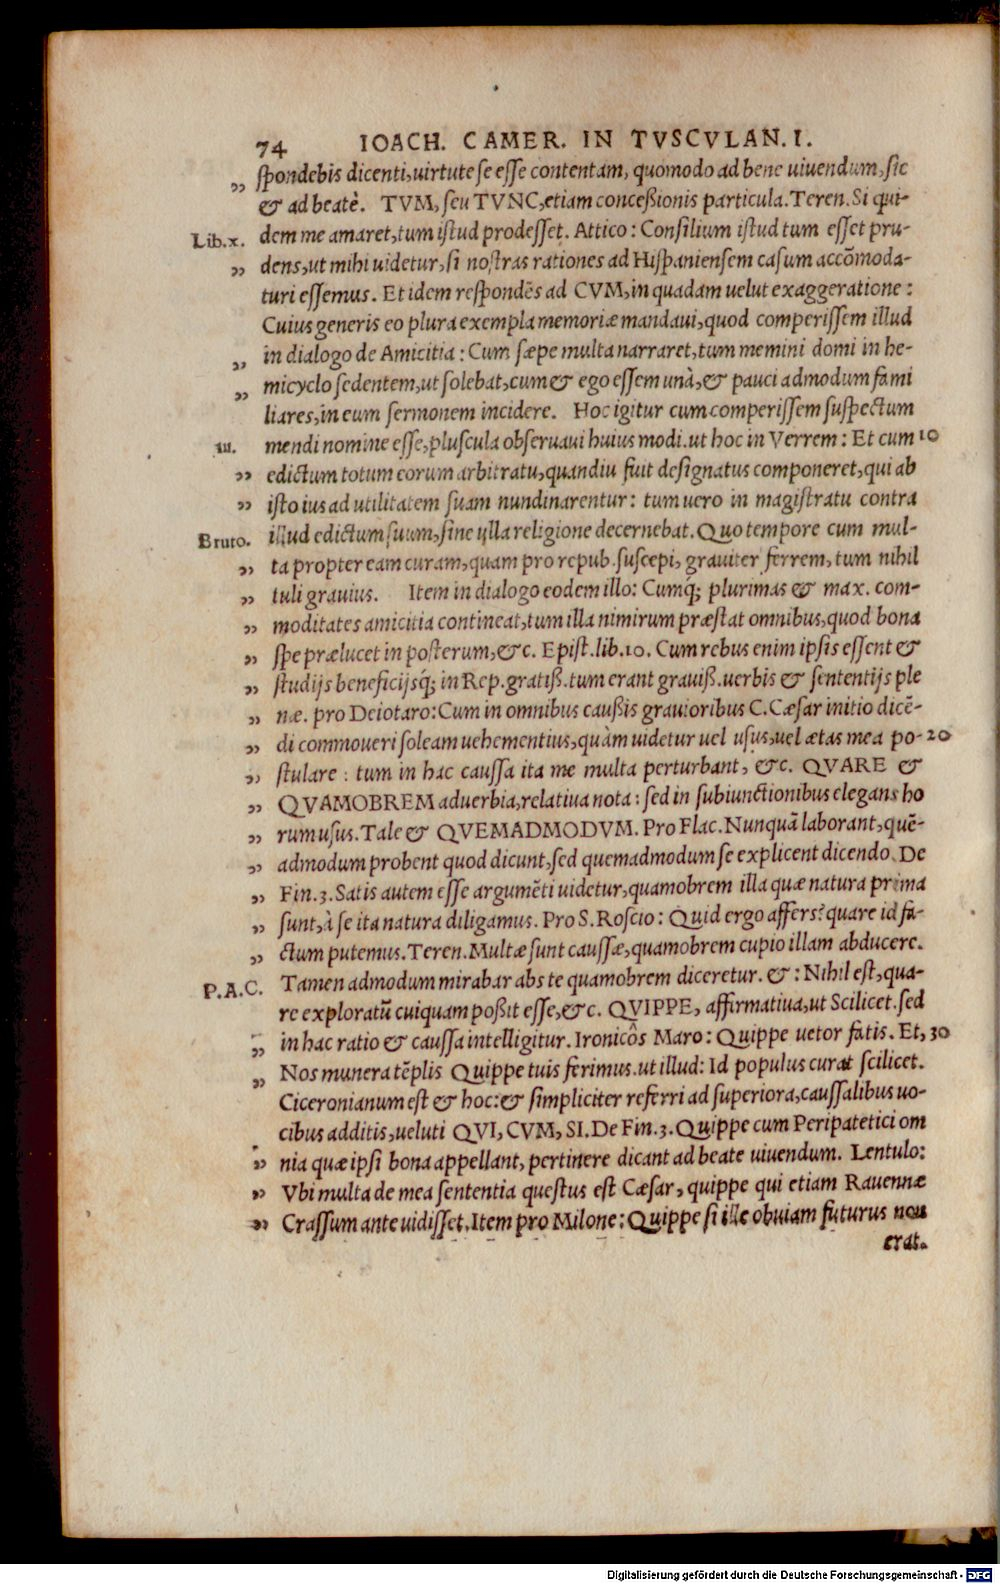 74 IOACH. CAMER. IN TVSCVLAN. I.
„ ſpondebis dicenti, uirtute ſe eſſe contentam, quomodo ad bene uiuendum, ſic
& ad beatè. TVM, ſeu TVNC, etiam conceßionis particula. Teren. Si qui-
Lib.x. dem me amaret, tum iſtud prodeſſet. Attico: Conſilium iſtud tum eſſet pru-
„ dens, ut mihi uidetur, ſi noſtras rationes ad Hiſpanienſem caſum accōmoda-
turi eſſemus. Et idem reſpondēs ad CVM, in quadam uelut exaggeratione:
Cuius generis eo plura exempla memoriæ mandaui, quod comperiſſem illud
„ in dialogo de Amicitia: Cum ſæpe multa narraret, tum memini domi in he-
„ micyclo ſedentem, ut ſolebat, cum & ego eſſem unà, & pauci admodum fami
liares, in eum ſermonem incidere. Hoc igitur cum comperiſſem ſuſpectum
III. mendi nomine eſſe, pluſcula obſeruaui huius modi. ut hoc in Verrem: Et cum 10
„ edictum totum eorum arbitratu, quandiu fuit deſignatus componeret, qui ab
„ iſto ius ad utilitatem ſuam nundinarentur: tum uero in magiſtratu contra
Bruto. illud edictum ſuum, ſine ylla religione decernebat. Quo tempore cum mul-
„ ta propter eam curam, quam pro repub. ſuſcepi, grauiter ferrem, tum nihil
„ tuli grauius. Item in dialogo eodem illo: Cumq́; plurimas & max. com-
„ moditates amicitia contineat, tum illa nimirum præſtat omnibus, quod bona
„ ſpe prælucet in poſterum, &c. Epiſt. lib. 10. Cum rebus enim ipſis eſſent &
„ ſtudijs beneficijsq́; in Rep. gratiß. tum erant grauiß. uerbis & ſententijs ple
„ næ. pro Deiotaro: Cum in omnibus cauſsis grauioribus C. Cæſar initio dicē-
„ di commoueri ſoleam uehementius, quàm uidetur uel uſus, uel ætas mea po- 20
„ ſtulare: tum in hac cauſſa ita me multa perturbant, &c. QVARE &
„ QVAMOBREM aduerbia, relatiua nota: ſed in ſubiunctionibus elegans ho
„ rum uſus. Tale & QVEMADMODVM. Pro Flac. Nunquā laborant, quē-
„ admodum probent quod dicunt, ſed quemadmodum ſe explicent dicendo. De
„ Fin. 3. Satis autem eſſe argumēti uidetur, quamobrem illa quæ natura prima
„ ſunt, à ſe ita natura diligamus. Pro S. Roſcio: Quid ergo affers? quare id fa-
„ ctum putemus. Teren. Multæ ſunt cauſſæ, quamobrem cupio illam abducere.
P.A.C. Tamen admodum mirabar abs te quamobrem diceretur. &: Nihil eſt, qua-
re exploratū cuiquam poßit eſſe, &c. QVIPPE, affirmatiua, ut Scilicet. ſed
„ in hac ratio & cauſſa intelligitur. Ironicôs Maro: Quippe uetor fatis. Et, 30
„ Nos munera tēplis Quippe tuis ferimus. ut illud: Id populus curat ſcilicet.
Ciceronianum eſt & hoc: & ſimpliciter referri ad ſuperiora, cauſſalibus uo-
cibus additis, ueluti QVI, CVM, SI. De Fin. 3. Quippe cum Peripatetici om
„ nia quæ ipſi bona appellant, pertinere dicant ad beate uiuendum. Lentulo:
„ Vbi multa de mea ſententia queſtus eſt Cæſar, quippe qui etiam Rauennæ
„ Craſſum ante uidiſſet. Item pro Milone: Quippe ſi ille obuiam futurus non
erat.
Digitalisierung gefördert durch die Deutsche Forschungsgemeinschaft - DFG